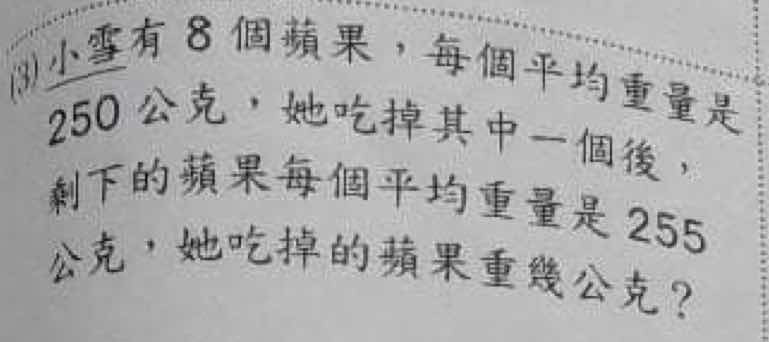 (3)小雪有 8 個蘋果，每個平均重量是
250 公克，她吃掉其中一個後，
剩下的蘋果每個平均重量是 255
公克，她吃掉的蘋果重幾公克？